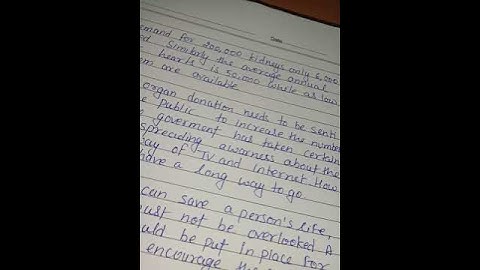 Date
emand for 200,000 kidneys only 6,000
ed. Similarly the average annual
hearts is 50,000 while as low
em are available
organ donation needs to be senti
e public to increase the number
e goverment has taken certain
spreading awarness about the
way of TV and internet. How
have a long way to go
can save a person's life,
must not be overlooked A
uld be put in place for
encourage